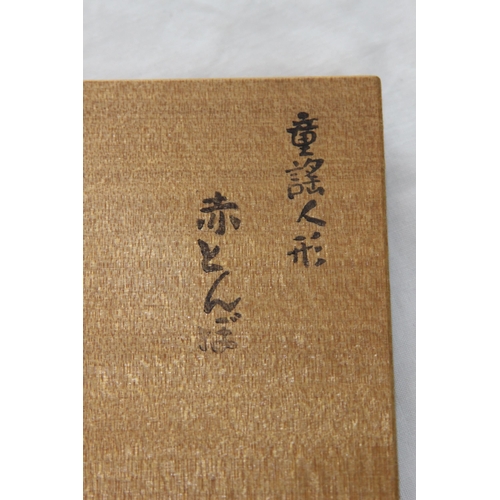 童謡人形
赤とんぼ